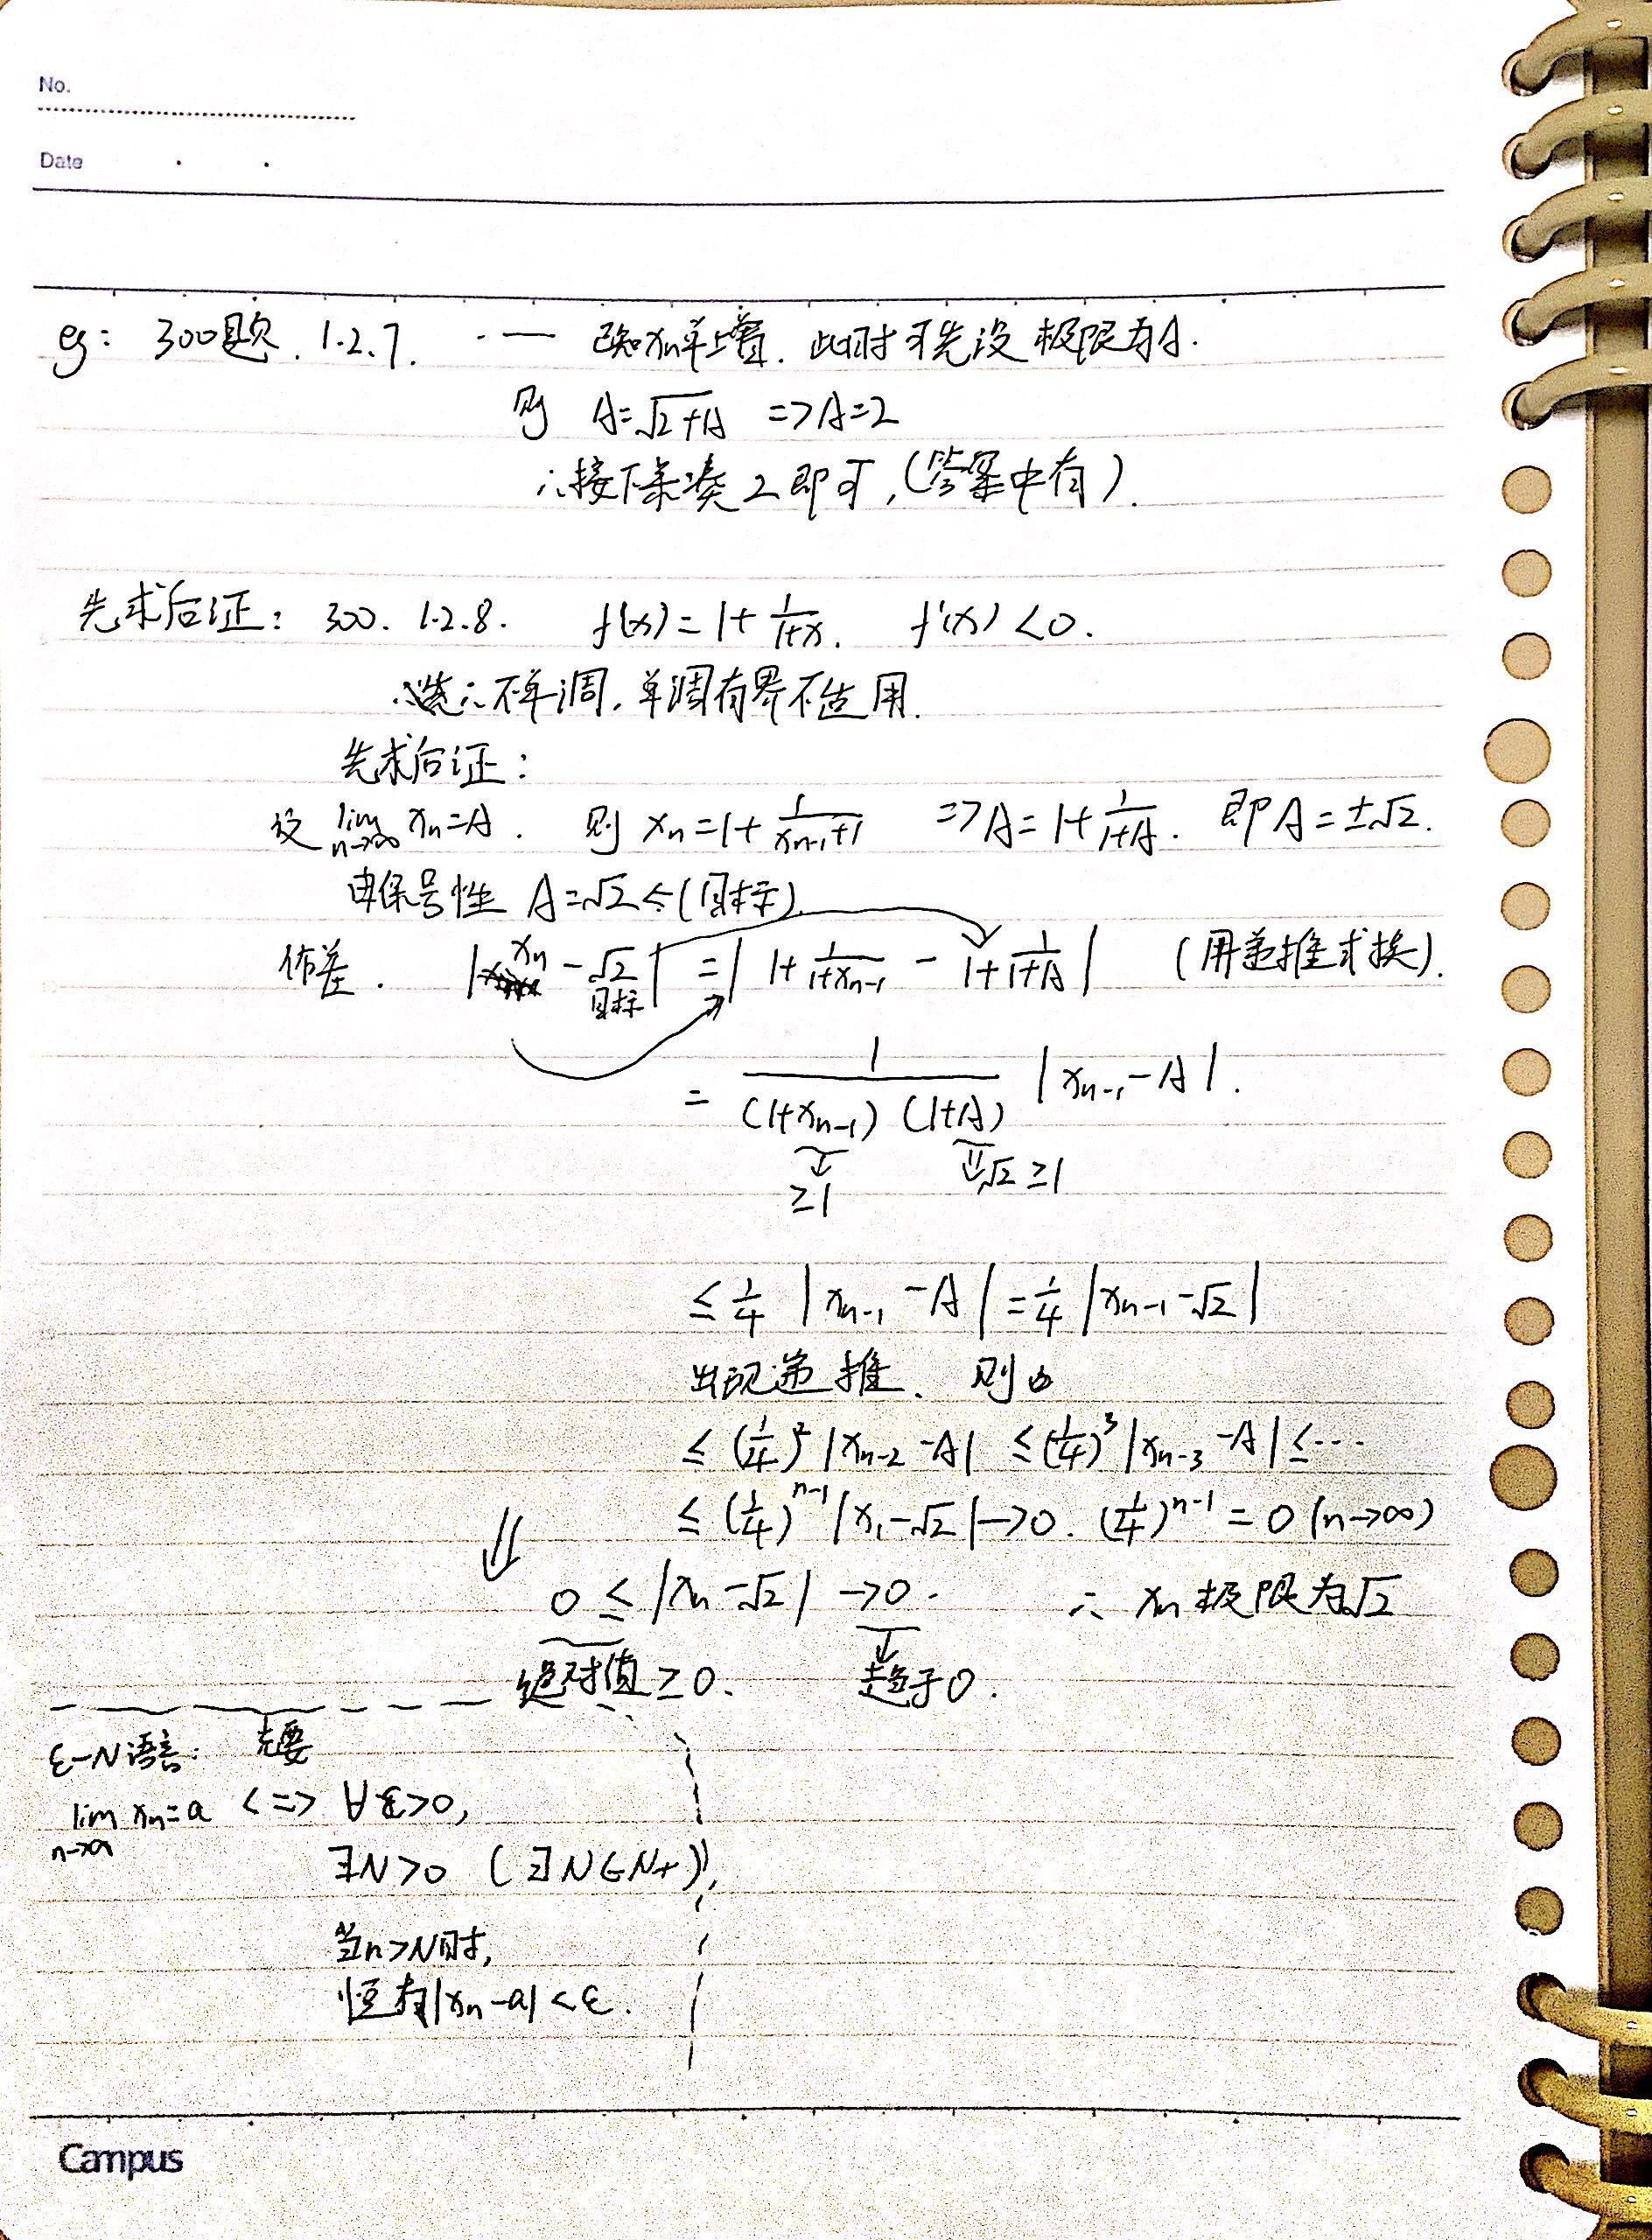 No.
Date
eg: 300题. 1.2.7. ·— 已知xn单增. 此时可先设极限为A.
则 A=√(2+A) => A=2
∴接下来凑2即可,(答案中有).
先求后证: 300. 1.2.8. f(x)=1+1/(1+x). f'(x)<0.
∴不单调, 单调有界不适用.
先求后证:
设 lim n→∞ xn=A. 则 xn=1+1/(xn-1+1) => A=1+1/(1+A). 即A=±√2.
由保号性 A=√2 ←(目标)
作差. |xn-√2| = |1+1/(1+xn-1) - 1+1/(1+A)| (用递推式换).
目标
= 1/((1+xn-1)(1+A)) |xn-1-A|.
≥1 √2≥1
≤1/4 |xn-1-A|=1/4 |xn-1-√2|
出现递推. 则
≤(1/4)²|xn-2-A| ≤(1/4)³|xn-3-A|≤···
≤(1/4)^(n-1)|x1-√2|→0. (1/4)^(n-1)=0(n→∞)
⇓ 0≤|xn-√2|→0. ∴ xn极限为√2
绝对值≥0. 趋于0.
ε-N语言: 充要
lim n→∞ xn=a <=> ∀ε>0,
∃N>0 (∃N∈N+),
当n>N时,
恒有|xn-a|<ε.
Campus